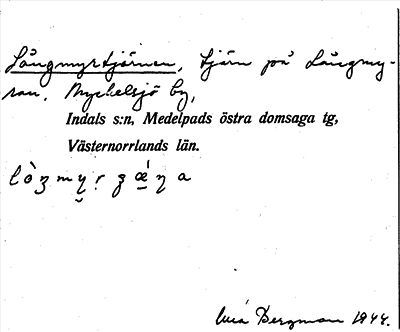 Långmyrtjärnen, tjärn på Långmy-
ran. Myckelsjö by,
Indals s:n, Medelpads östra domsaga tg,
Västernorrlands län.
Bergman 1944.